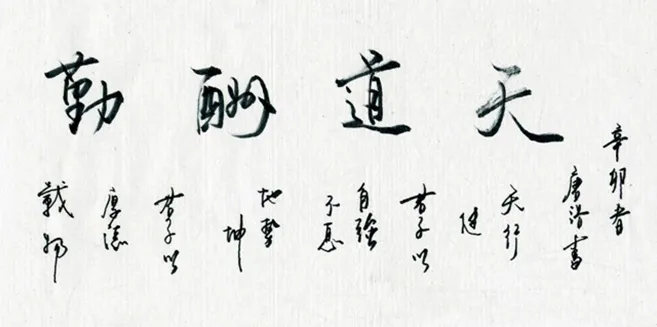 天道酬勤
天行
健
君子以
自强
不息
地势
坤
君子以
厚德
载物
辛卯春
唐浩书